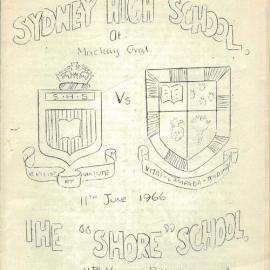 SYDNEY HIGH SCHOOL,
At
Mackay Oval.
S.H.S
Vs
VERITATE ET VIRTUTE
VITAI LAMPADA TRADUNT
11TH June 1966
THE "SHORE" SCHOOL.